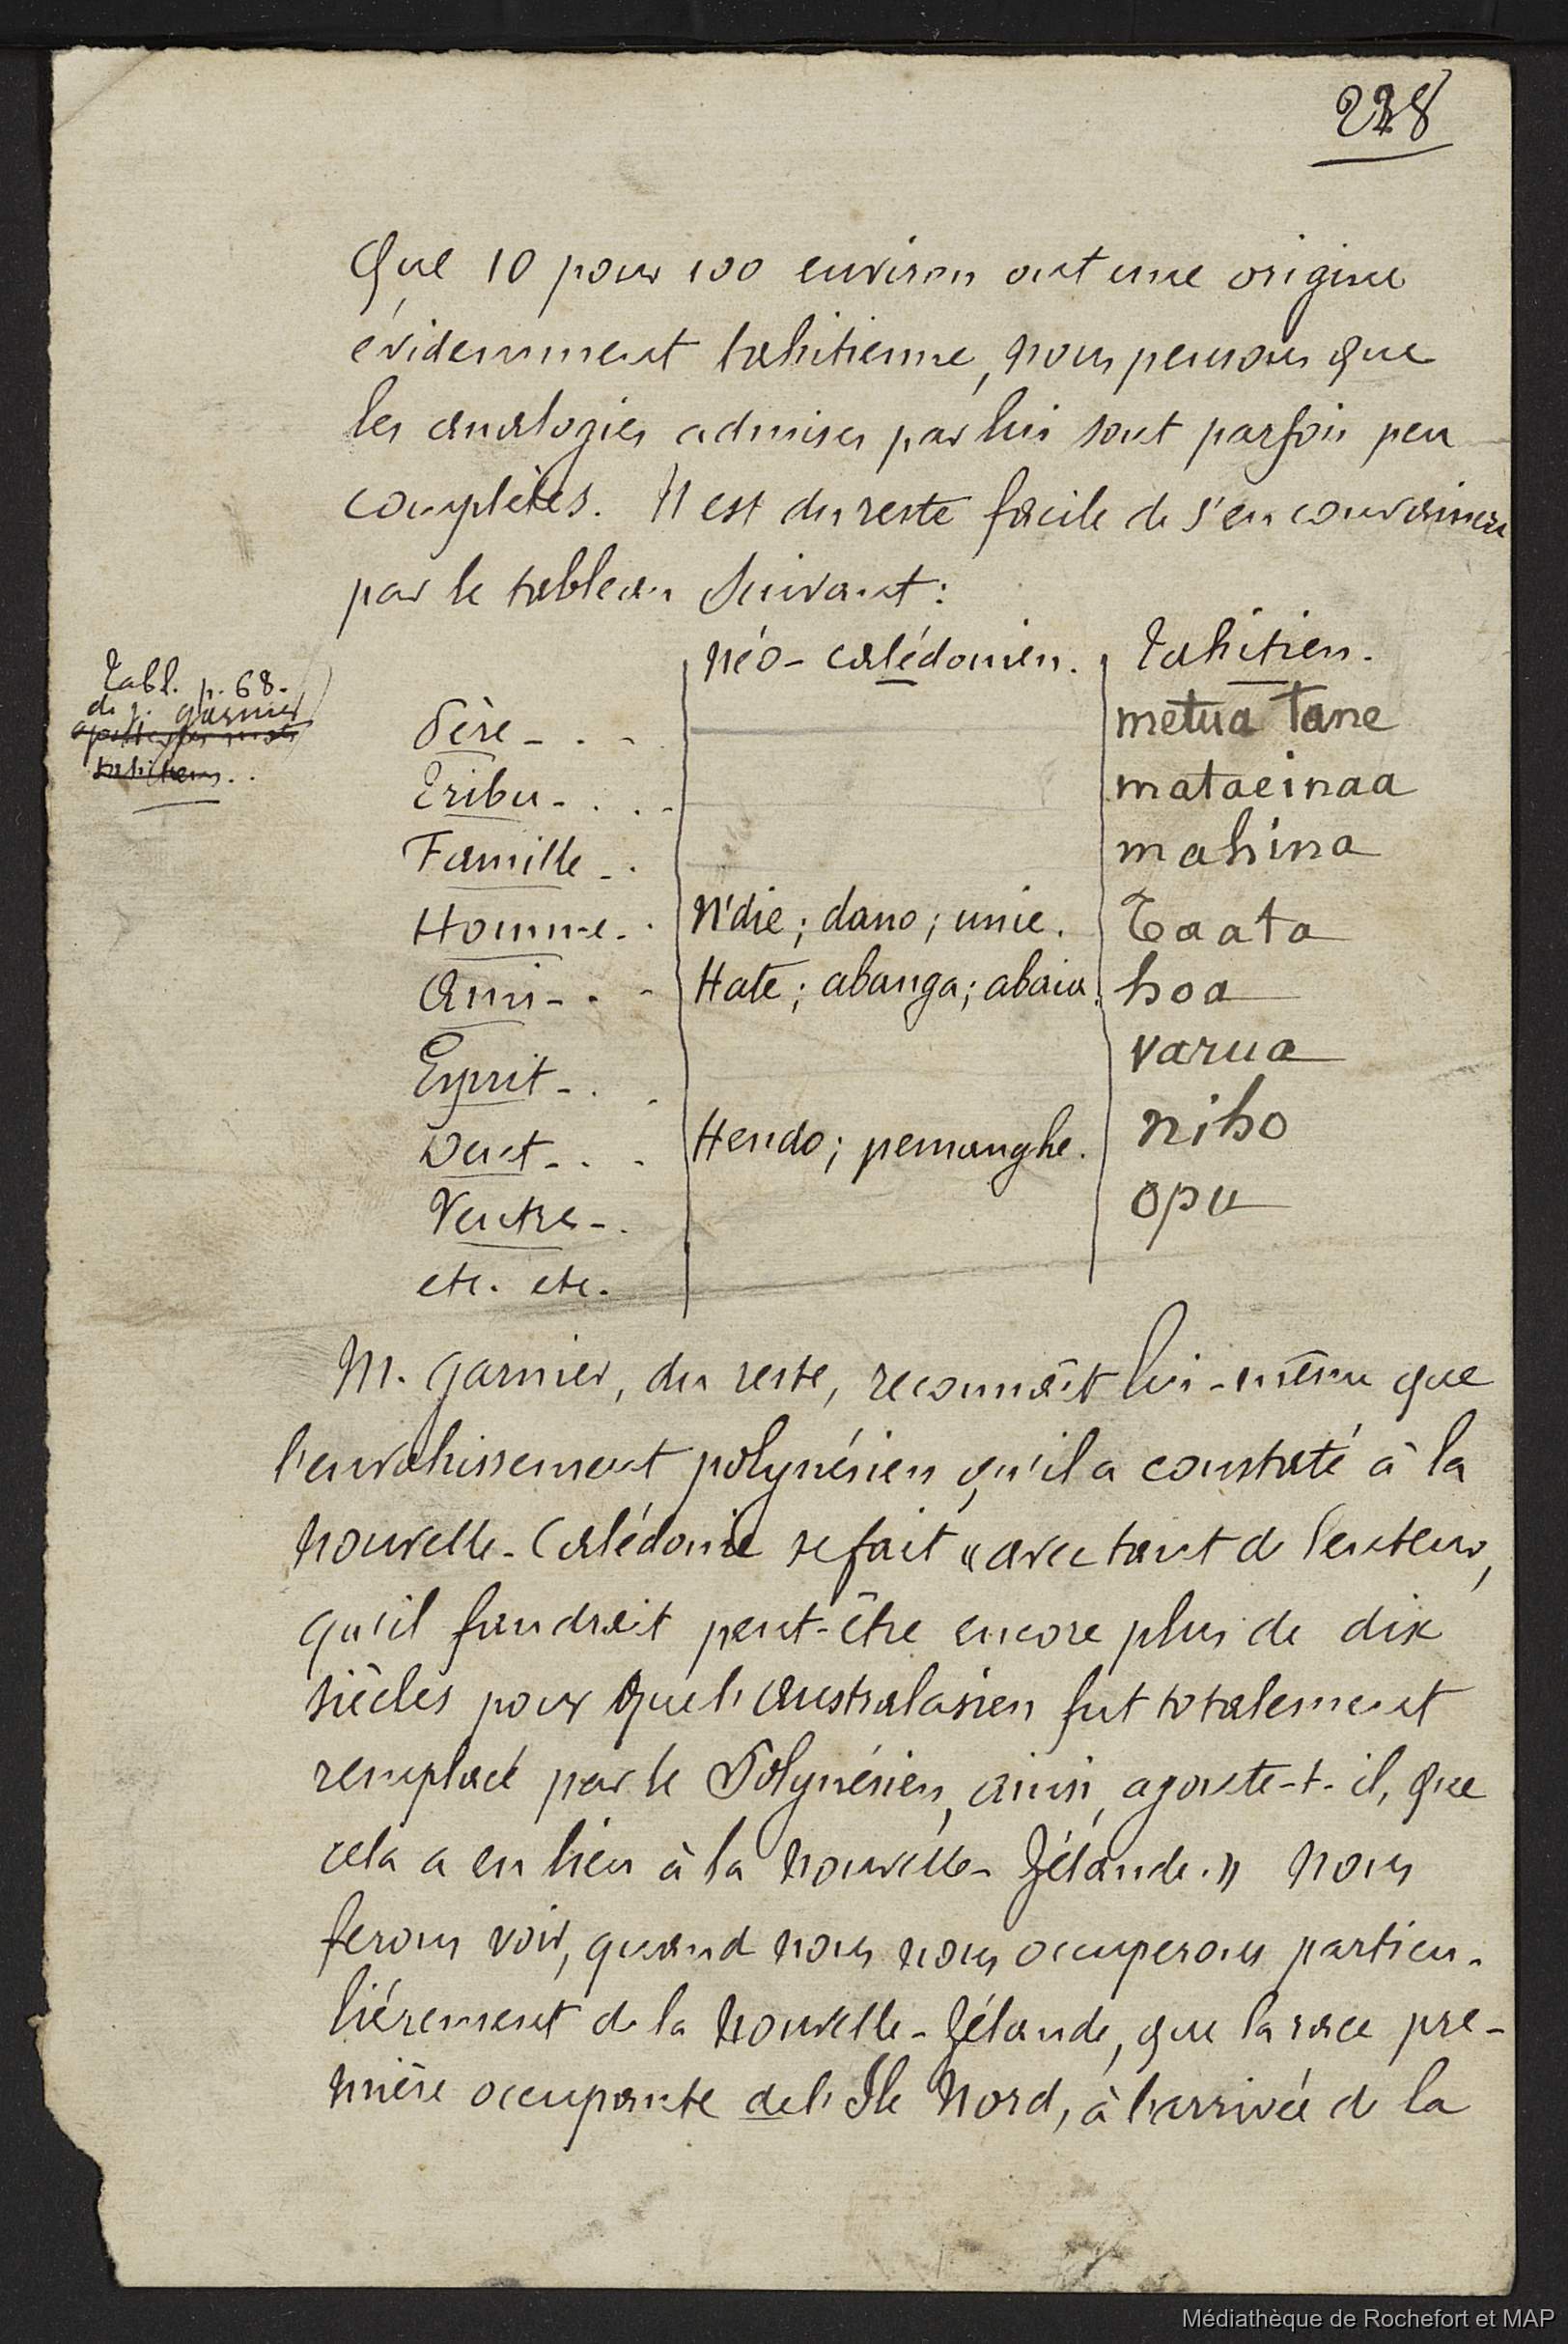 228
que 10 pour 100 environ ont une origine
évidemment tahitienne, nous pensons que
les analogies admises par lui sont parfois peu
complètes. Il est du reste facile de s'en convaincre
par le tableau suivant :
néo-calédonien. Tahitien.
Tabl. p. 68.
de J. Garnier
tahitiens..
Père - . - metua Tane
Tribu - . . - mataeinaa
Famille - . mahina
Homme - . N'die ; dano ; unie. Taata
Ami - . - Hate ; abanga ; abaia. hoa
Esprit - . - varua
Dent - . - Hendo ; pemanghe. niho
Ventre - . opu
etc. etc.
M. Garnier, du reste, reconnaît lui-même que
l'envahissement polynésien qu'il a constaté à la
Nouvelle-Calédonie se fait « avec tant de lenteur,
qu'il faudrait peut-être encore plus de dix
siècles pour que l'australasien fut totalement
remplacé par le Polynésien, ainsi, ajoute-t-il, que
cela a eu lieu à la Nouvelle-Zélande. » Nous
ferons voir, quand nous nous occuperons particu-
lièrement de la Nouvelle-Zélande, que la race pre-
mière occupante de l'Ile Nord, à l'arrivée de la
Médiathèque de Rochefort et MAP